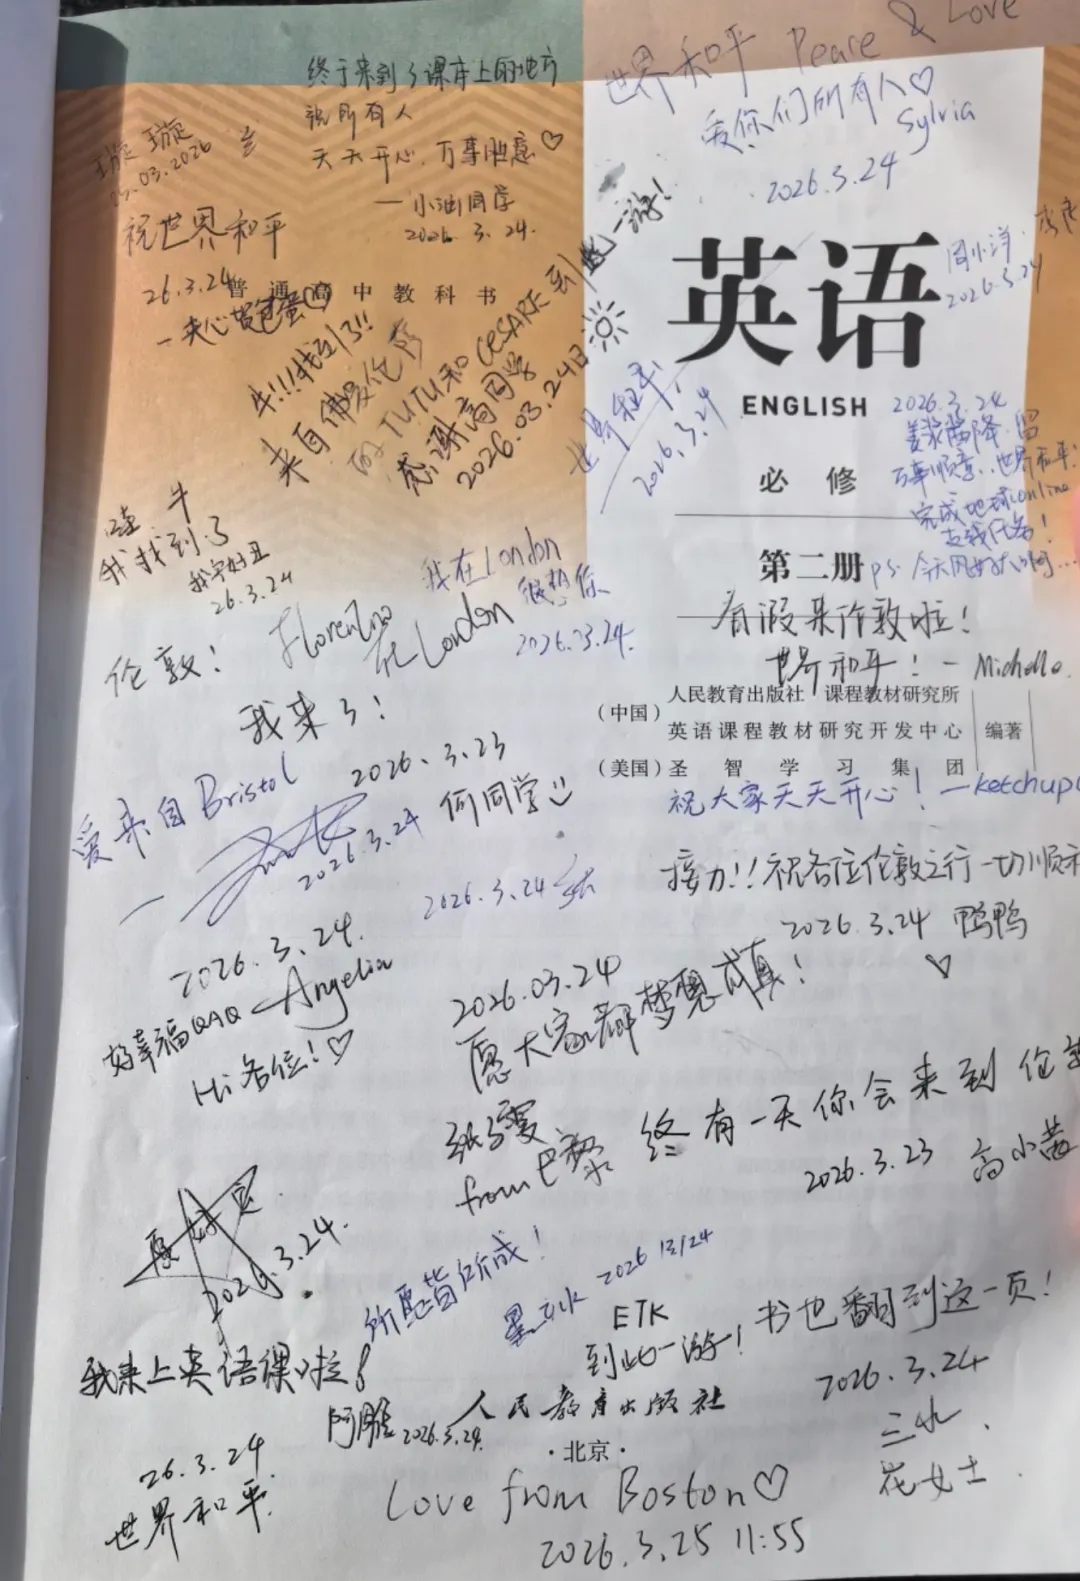 世界和平 Peace & Love
爱你们所有人♡
Sylvia
2026.3.24
终于来到了课本上的地方
祝所有人
天天开心,万事胜意♡
一小油同学
2026.3.24.
璇璇
03.2026
祝世界和平
26.3.24
一夹心荷包蛋
普通高中教科书
牛!!!找到了!!
来自佛爱伦萨
的TUTU和CESARE到此一游!
感谢高同学
2026.03.24日
世界和平!
2026.3.24
周小洋
2026.3.24
英语
ENGLISH
必修
第二册
2026.3.24
留
万事顺意,世界和平!
完成地球online
支线任务!
ps. 今天风好大啊...
哇 牛
我找到了
我字好丑
26.3.24
我在London
很想你
2026.03.24.
Florentino
在London
有假来伦敦啦!
世界和平!一Michelle.
伦敦!
我来了!
2026.3.23
何同学
(中国)
人民教育出版社 课程教材研究所
英语课程教材研究开发中心
编著
(美国)圣智学习集团
祝大家天天开心!一ketchup
爱来自Bristol
2026.3.24
2026.3.24
接力!!祝各位伦敦之行一切顺利
2026.3.24 鸭鸭
♡
2026.3.24.
好幸福QAQ -Angelia
Hi各位!♡
2026.03.24
愿大家都梦想成真!
from巴黎
终有一天你会来到伦敦
2026.3.23 高小茜
2026.3.24.
所愿皆所成!
2026 3/24
ETK
到此一游!
书也翻到这一页!
2026.3.24
三水.
花女士.
我来上英语课啦!
阿胜 2026.3.24.
26.3.24
世界和平.
人民教育出版社
·北京·
Love from Boston♡
2026.3.25 11:55